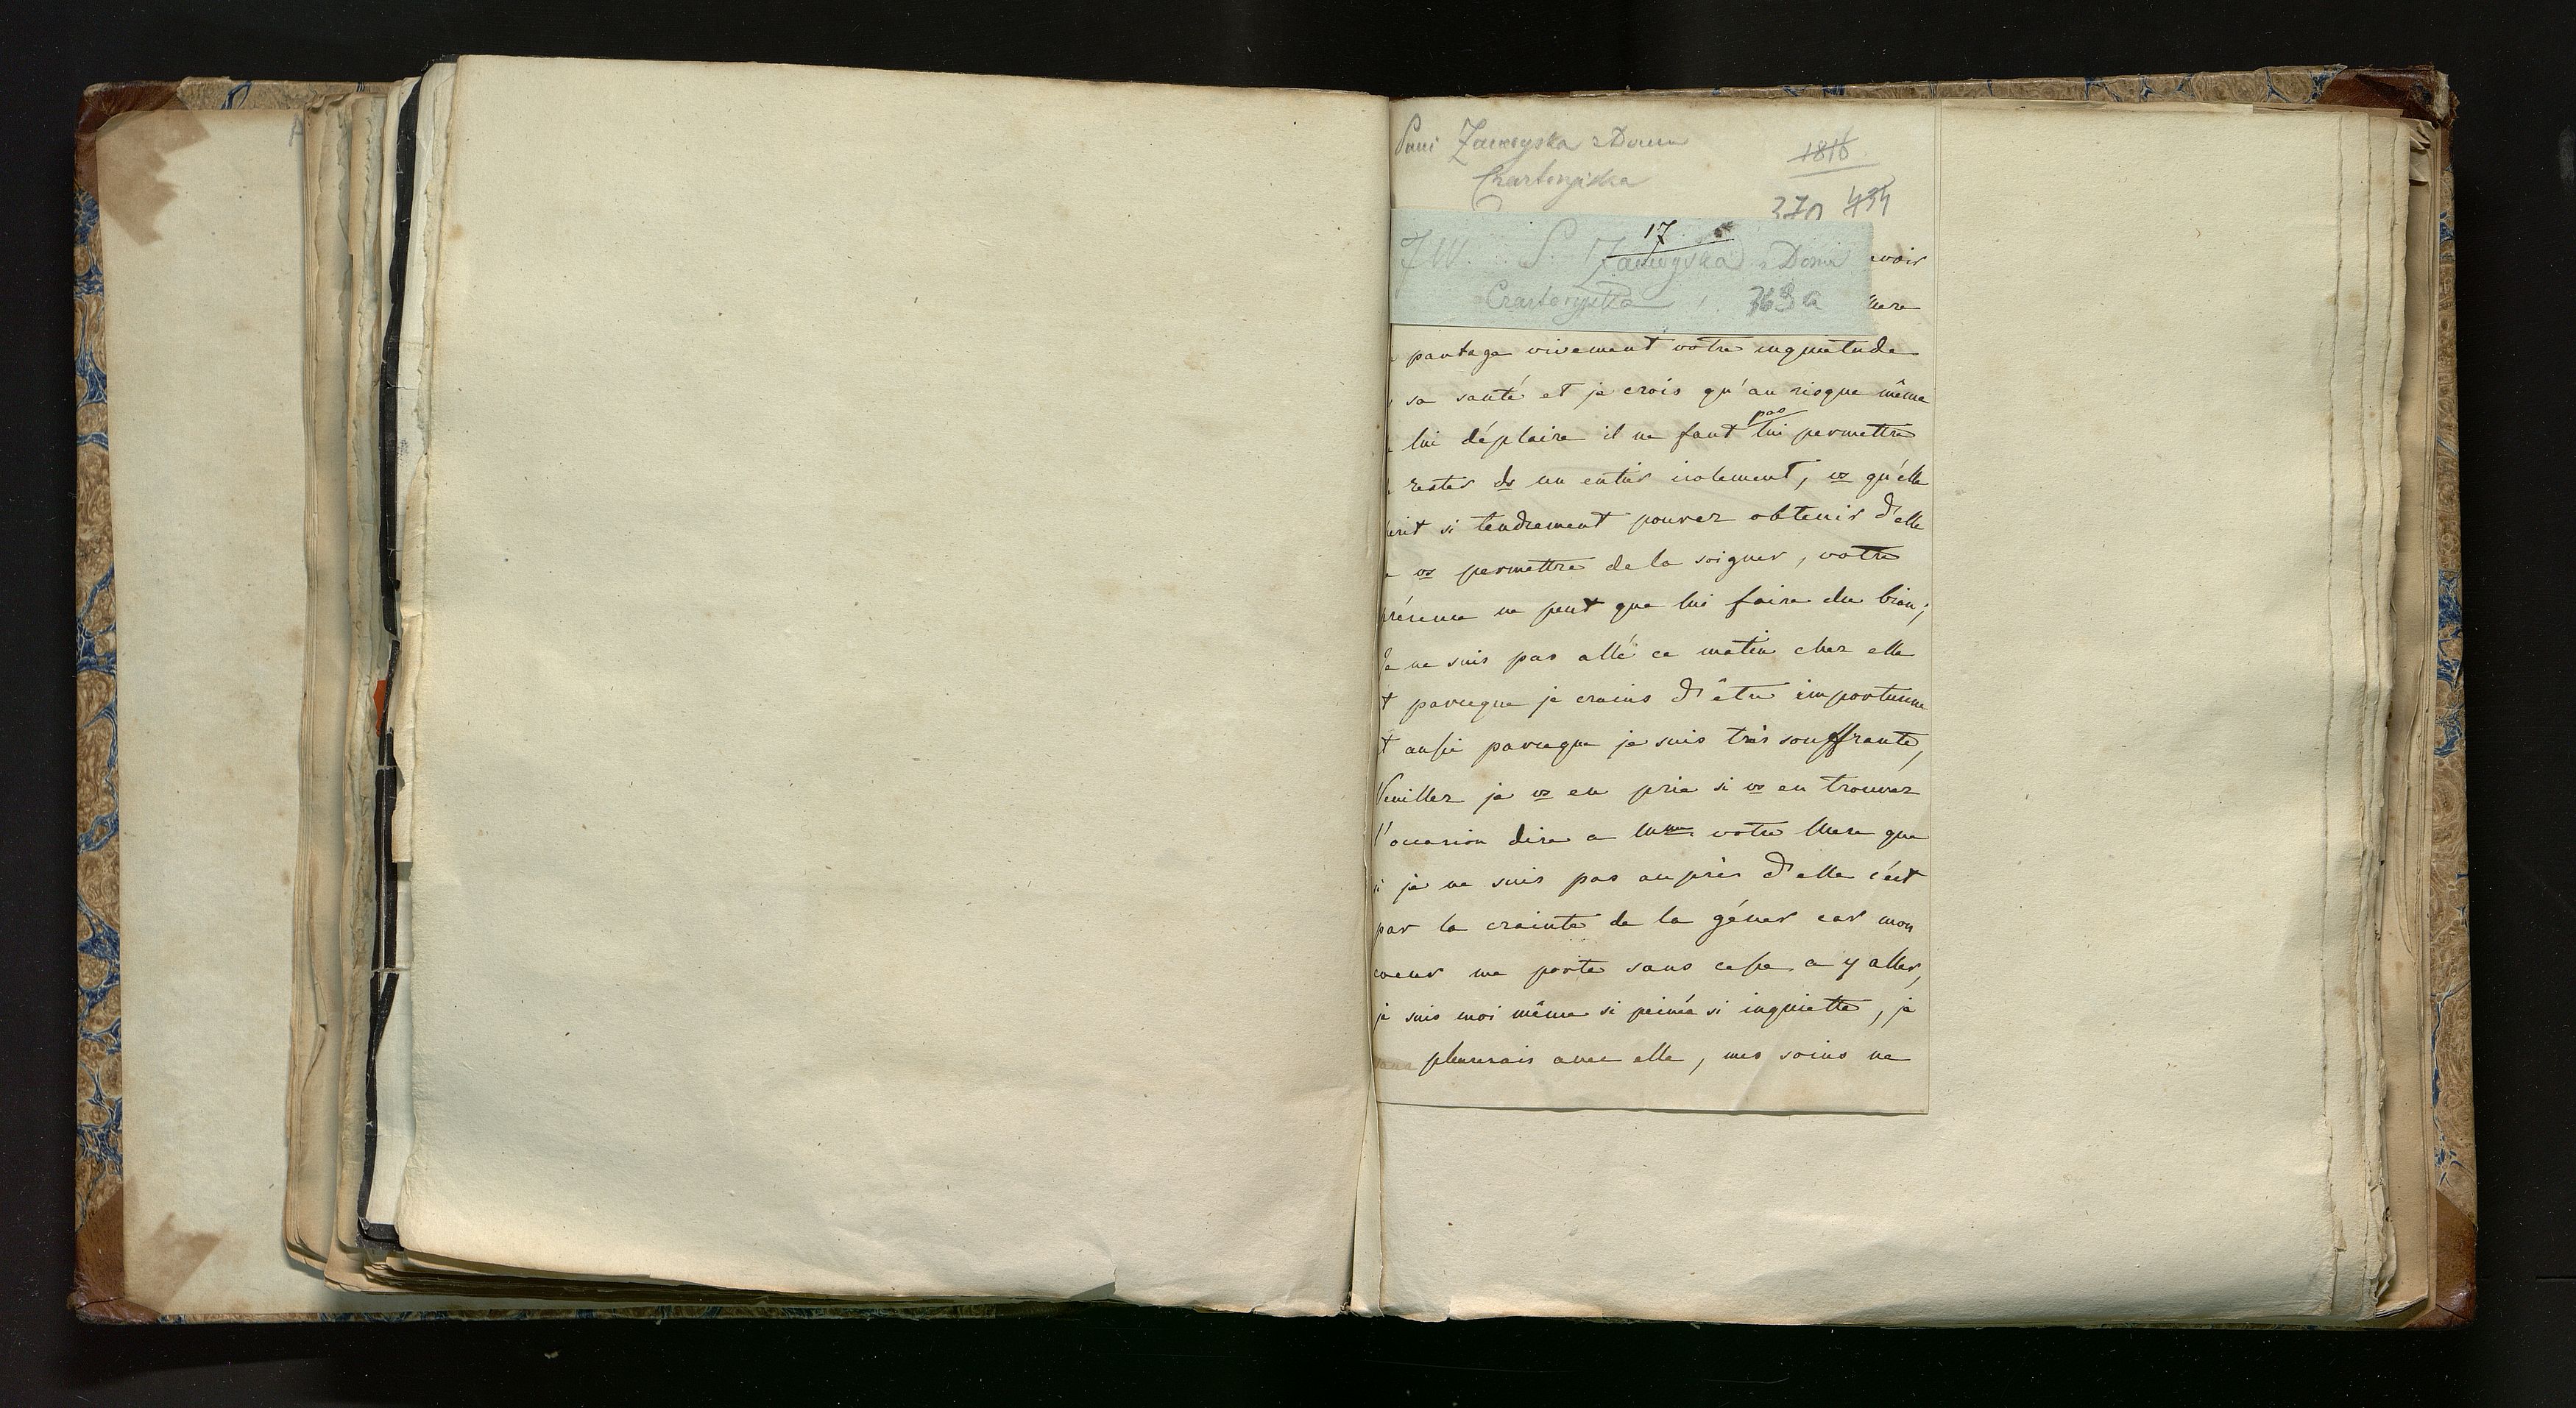 Pani Zamoyska z Domu
Czartoryska
1816
370 434
17
J W. S. Zamoyska z Domu
Czartoryska 363 a
avoir
Mere
partage vivement votre inquietude
sa santé et je crois qu'au risque même
lui déplaire il ne faut pas lui permettre
rester ds un entier isolement, vs qu'elle
si tendrement pouvez obtenir d'elle
vs permettre de la soigner, votre
présence ne peut que lui faire du bien;
Je ne suis pas allé ce matin chez elle
t parceque je crains d'être importune
t aussi parceque je suis très souffrante,
Veuillez je vs en prie si vs en trouvez
l'occasion dire a Mme votre Mere que
si je ne suis pas auprès d'elle c'est
par la crainte de la géner car mon
coeur me porte sans cesse a y aller,
je suis moi même si peinée si inquiette, je
pleurerais avec elle, mes soins ne